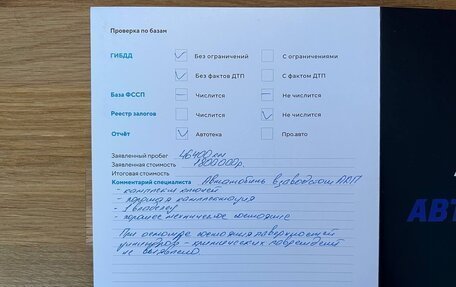 Проверка по базам
ГИБДД Без ограничений С ограничениями
Без фактов ДТП С фактом ДТП
База ФССП Числится Не числится
Реестр залогов Числится Не числится
Отчёт Автотека Про.авто
Заявленный пробег 46400 км
Заявленная стоимость 1800000р.
Итоговая стоимость
Комментарий специалиста Автомобиль в заводском ЛКП
- комплект ключей
- хорошая комплектация
- 1 владелец
- хорошее техническое состояние
При осмотре состояния поверхностей
цилиндров - критических повреждений
не выявлено
АВТ